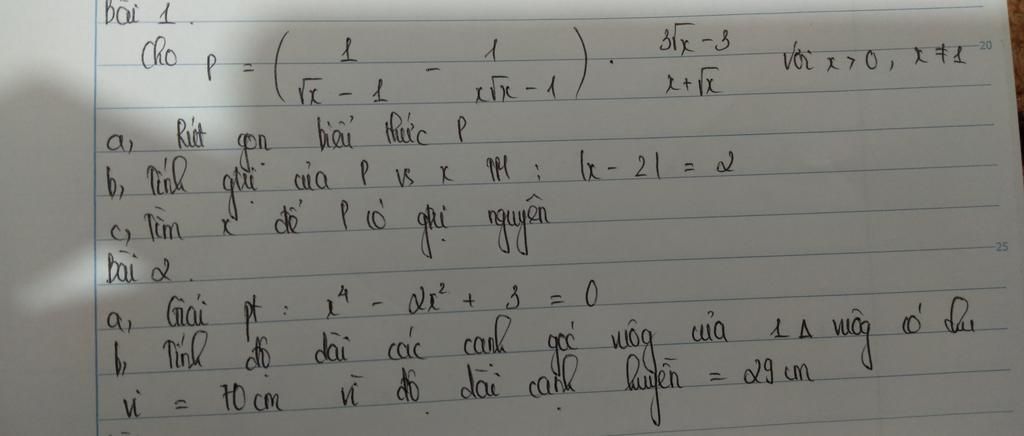 Bài 1.
Cho P = (1/(√x - 1) - 1/(x√x - 1)) . (3√x - 3)/(x + √x) với x > 0, x ≠ 1
a, Rút gọn biểu thức P
b, Tính gtrị của P vs x TM : |x - 2| = 2
c, Tìm x để P có gtrị nguyên
Bài 2.
a, Giải pt : x⁴ - 2x² + 3 = 0
b, Tính độ dài các cạnh góc vuông của 1 Δ vuông có chu
vi = 70cm vì độ dài cạnh huyền = 29 cm
20
25